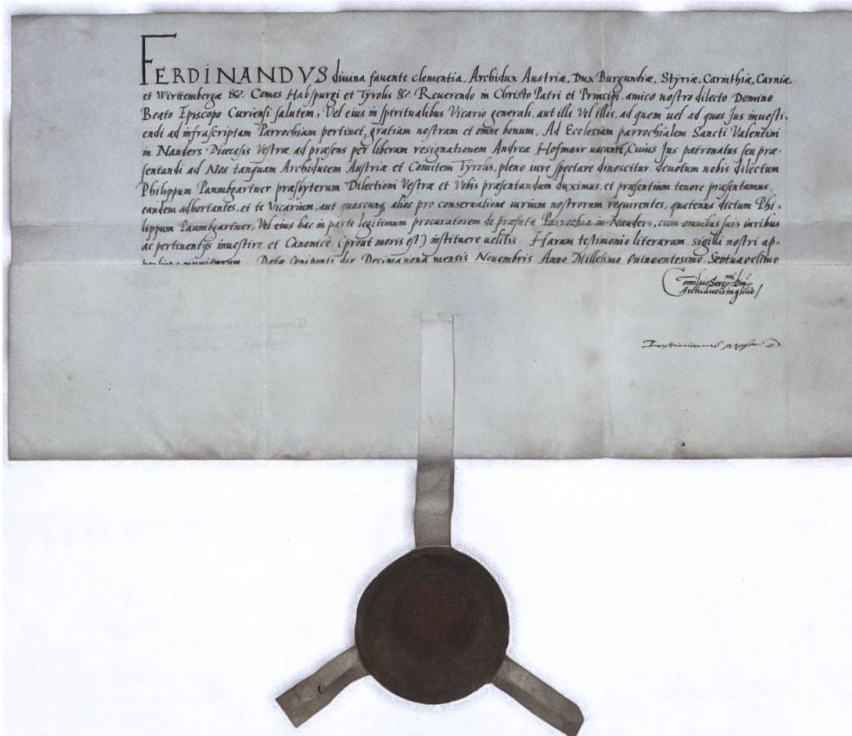 FERDINANDVS divina fauente clementia, Archidux Austriæ, Dux Burgundiæ, Styriæ, Carinthiæ, Carniæ,
et Wirtembergæ &c. Comes Habspurgi et Tyrolis &c. Reuerendo in Christo Patri et Principi, amico nostro dilecto Domino
Beato Episcopo Curiensi salutem, Vel eius in spiritualibus Vicario generali, aut illi Vel illis, ad quem uel ad quos Jus inuesti-
endi ad infrascriptam Parrochiam pertinet, gratiam nostram et omne bonum. Ad Ecclesiam parrochialem Sancti Valentini
in Nauders Diœcesis Vestræ ad præsens per liberam resignationem Andreæ Hofmaur uacante, Cuius Jus patronatus seu præ-
sentandi ad Nos tanquam Archiducem Austriæ et Comitem Tyrolis, pleno iure spectare dinoscitur, deuotum nobis dilectum
Philippum Paumbgartner præsbyterum Dilectioni Vestræ et Vobis præsentandum duximus, et præsentium tenore præsentamus,
eandem adhortantes, et te Vicarium, aut quoscunq alios pro conseruatione iurium nostrorum requirentes, quatenus dictum Phi-
lippum Paumbgartner, Vel eius hac in parte legitimum procuratorem de præfata Parrochia in Nauders, cum omnibus suis iuribus
ac pertinentijs inuestire et Canonicè (prout moris est) instituere uelitis. Harum testimonio literarum, sigilli nostri ap-
Datæ Oeniponti die Decimanona mensis Nouembris Anno Millesimo Quingentesimo Septuagesimo